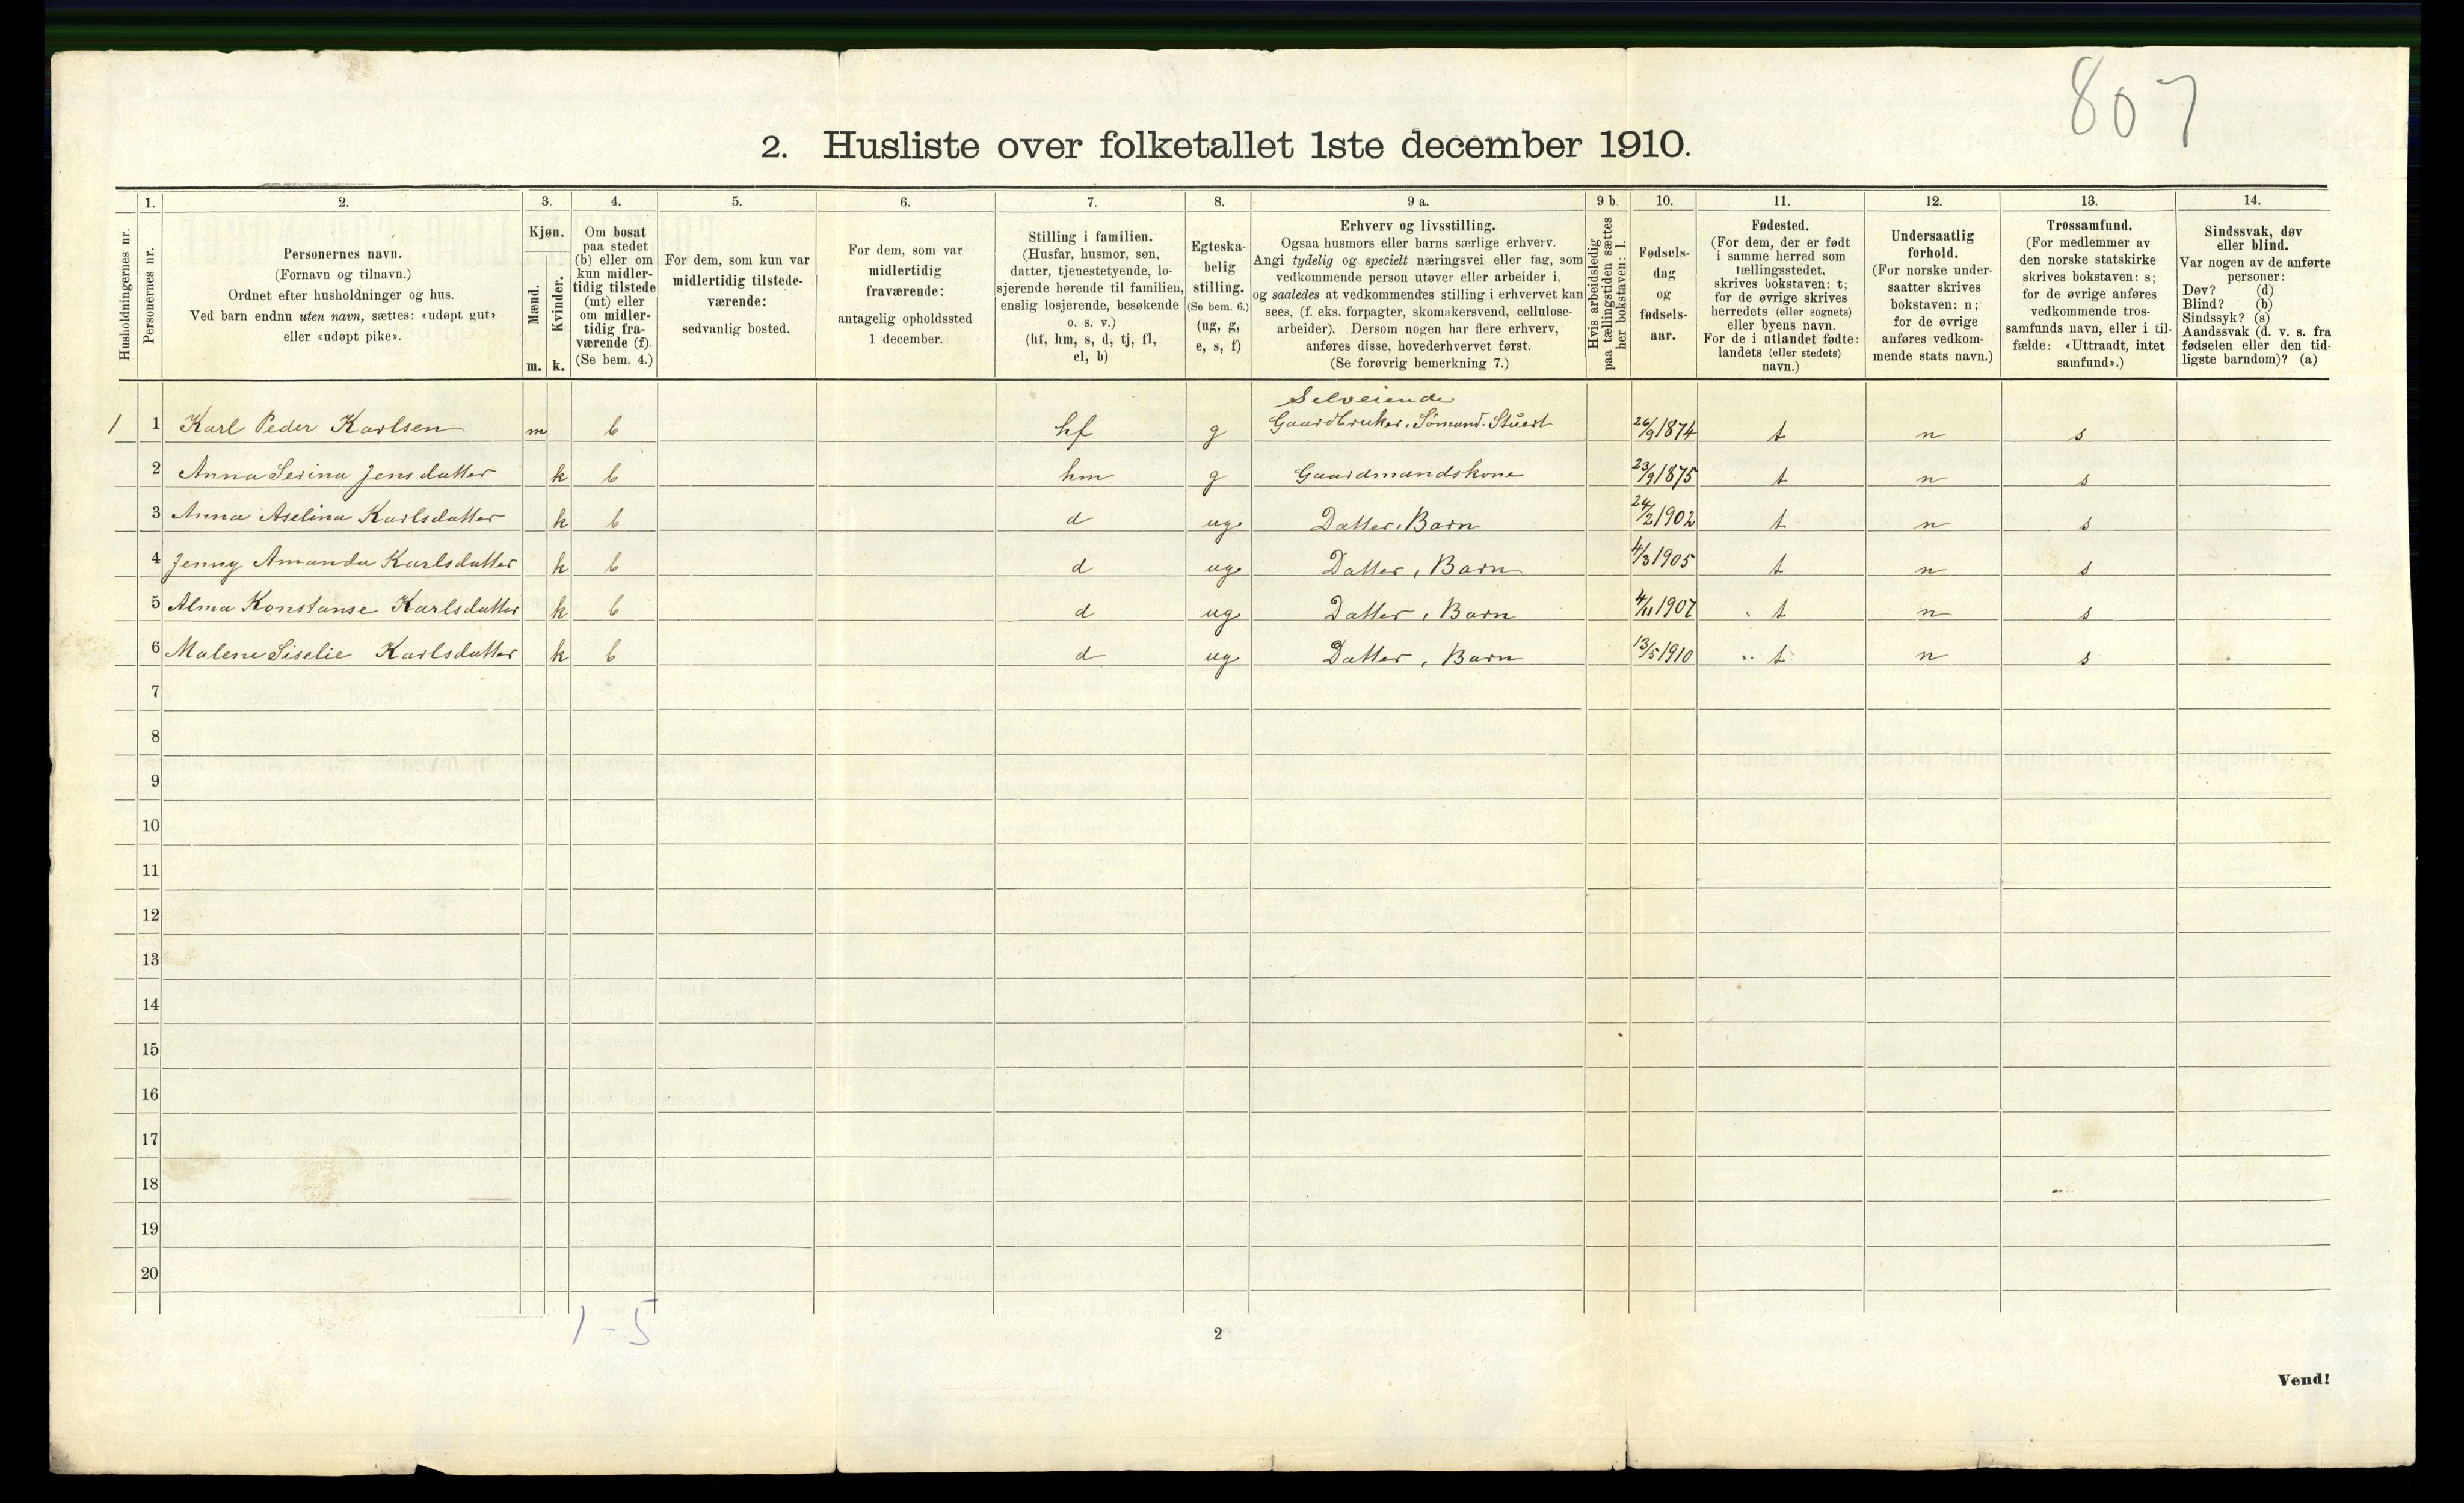 807
2. Husliste over folketallet 1ste december 1910.
1. 2. 3. 4. 5. 6. 7. 8. 9 a. 9 b. 10. 11. 12. 13. 14.
Husholdningernes nr.
Personernes nr.
Personernes navn.
(Fornavn og tilnavn.)
Ordnet efter husholdninger og hus.
Ved barn endnu uten navn, sættes: «udøpt gut»
eller «udøpt pike».
Kjøn.
Mænd.
Kvinder.
m. k.
Om bosat
paa stedet
(b) eller om
kun midler-
tidig tilstede
(mt) eller
om midler-
tidig fra-
værende (f).
(Se bem. 4.)
For dem, som kun var
midlertidig tilstede-
værende:
sedvanlig bosted.
For dem, som var
midlertidig
fraværende:
antagelig opholdssted
1 december.
Stilling i familien.
(Husfar, husmor, søn,
datter, tjenestetyende, lo-
sjerende hørende til familien,
enslig losjerende, besøkende
o. s. v.)
(hf, hm, s, d, tj, fl,
el, b)
Egteska-
belig
stilling.
(Se bem. 6.)
(ug, g,
e, s, f)
Erhverv og livsstilling.
Ogsaa husmors eller barns særlige erhverv.
Angi tydelig og specielt næringsvei eller fag, som
vedkommende person utøver eller arbeider i,
og saaledes at vedkommendes stilling i erhvervet kan
sees, (f. eks. forpagter, skomakersvend, cellulose-
arbeider). Dersom nogen har flere erhverv,
anføres disse, hovederhvervet først.
(Se forøvrig bemerkning 7.)
Hvis arbeidsledig
paa tællingstiden sættes
her bokstaven: l.
Fødsels-
dag
og
fødsels-
aar.
Fødested.
(For dem, der er født
i samme herred som
tællingsstedet,
skrives bokstaven: t;
for de øvrige skrives
herredets (eller sognets)
eller byens navn.
For de i utlandet fødte:
landets (eller stedets)
navn.)
Undersaatlig
forhold.
(For norske under-
saatter skrives
bokstaven: n;
for de øvrige
anføres vedkom-
mende stats navn.)
Trossamfund.
(For medlemmer av
den norske statskirke
skrives bokstaven: s;
for de øvrige anføres
vedkommende tros-
samfunds navn, eller i til-
fælde: «Uttraadt, intet
samfund».)
Sindssvak, døv
eller blind.
Var nogen av de anførte
personer:
Døv? (d)
Blind? (b)
Sindssyk? (s)
Aandssvak (d. v. s. fra
fødselen eller den tid-
ligste barndom)? (a)
Selveiende
1 1 Karl Peder Karlsen m b hf g Gaardbruker, Sømand. Stuert 26/9 1874 t n s
2 Anna Serina Jensdatter k b hm g Gaardmandskone 23/9 1875 t n s
3 Anna Aselina Karlsdatter k b d ug Datter, Barn 24/2 1902 t n s
4 Jenny Amanda Karlsdatter k b d ug Datter, Barn 4/3 1905 t n s
5 Alma Konstanse Karlsdatter k b d ug Datter, Barn 4/11 1907 t n s
6 Malene Siselie Karlsdatter k b d ug Datter, Barn 13/5 1910 t n s
7
8
9
10
11
12
13
14
15
16
17
18
19
20
1-5
2
Vend!